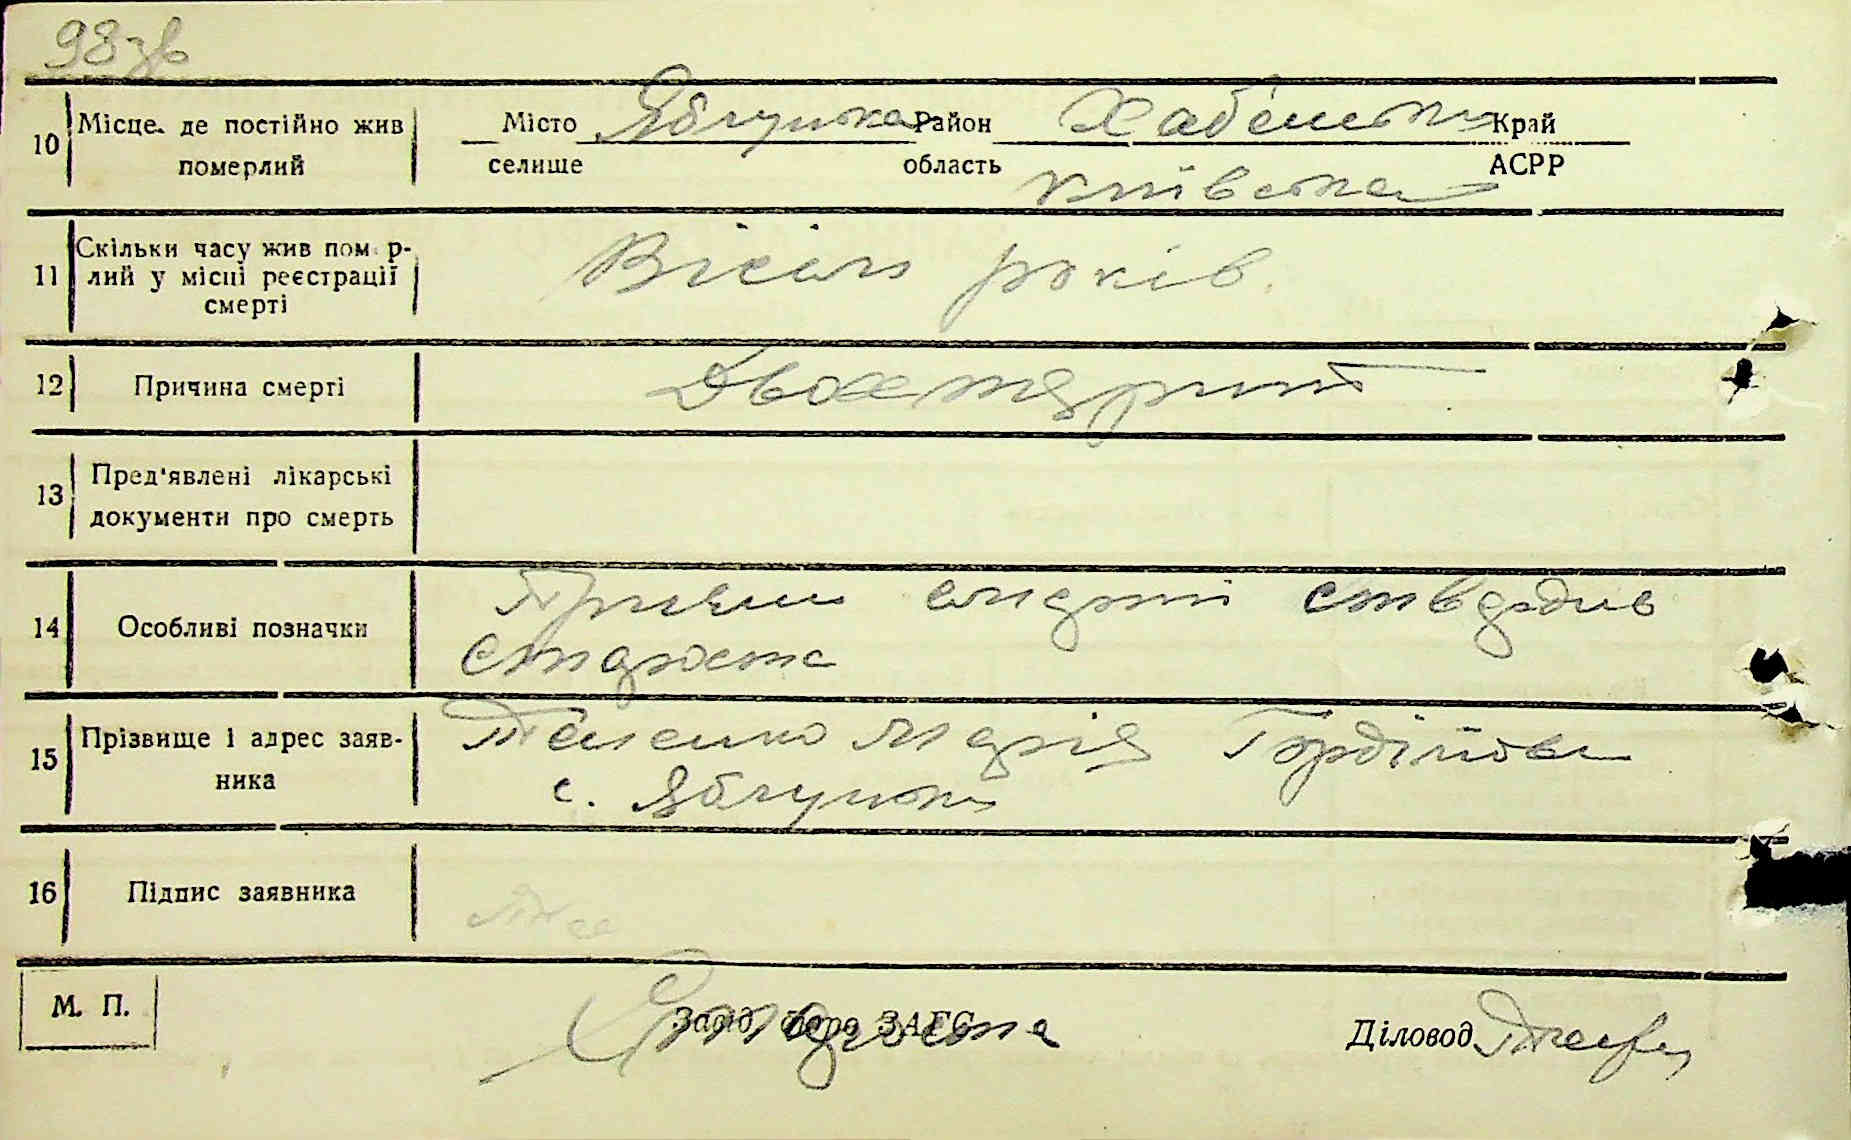 98зв
10 Місце де постійно жив померлий Місто селище Яблунка Район область Хабенськ Край АСРР
Київська
11 Скільки часу жив помер-
лий у місці реєстрації
смерті Вісім років
12 Причина смерті
13 Пред'явлені лікарські
документи про смерть
14 Особливі позначки
староста
15 Прізвище і адрес заяв-
ника Марія Гордіївна
с. Яблунка
16 Підпис заявника
М. П. Завід. бюро ЗАГС Староста Діловод